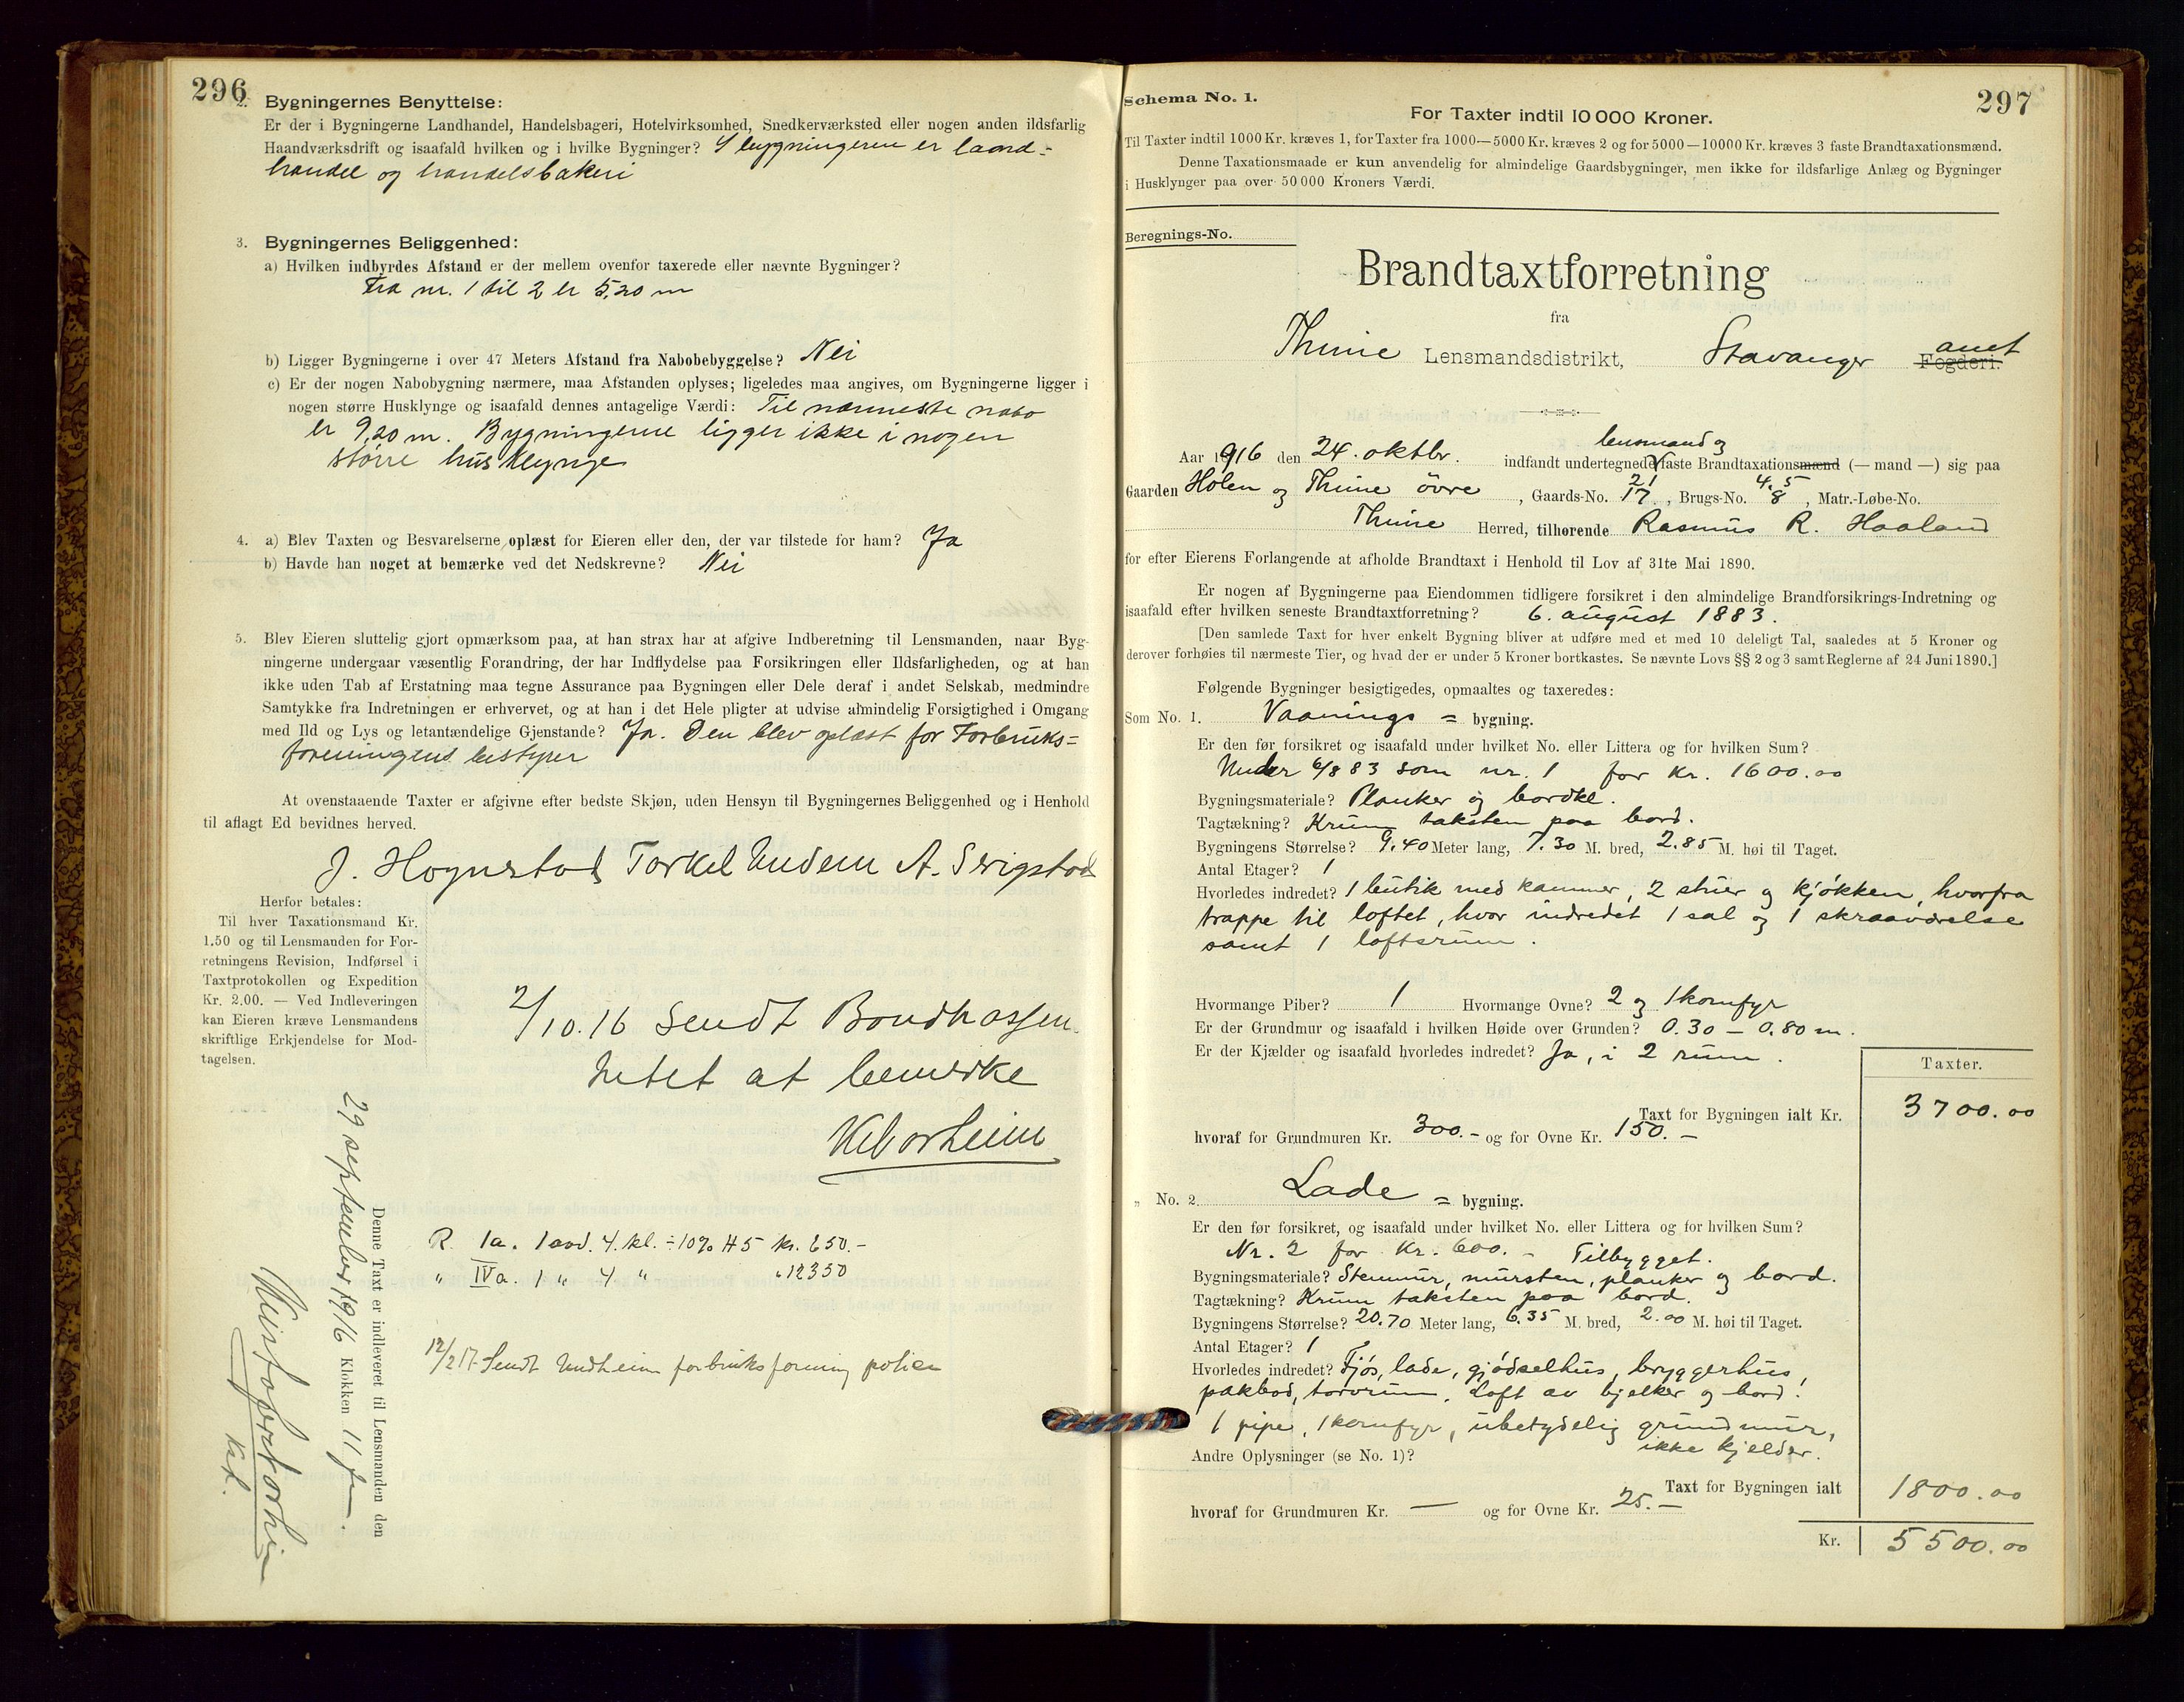 296
2. Bygningernes Benyttelse:
Er der i Bygningerne Landhandel, Handelsbageri, Hotelvirksomhed, Snedkerværksted eller nogen anden ildsfarlig
Haandværksdrift og isaafald hvilken og i hvilke Bygninger? I bygningerne er land-
handel og handelsbakeri
3. Bygningernes Beliggenhed:
a) Hvilken indbyrdes Afstand er der mellem ovenfor taxerede eller nævnte Bygninger?
Fra nr. 1 til 2 er 5,20 m
b) Ligger Bygningerne i over 47 Meters Afstand fra Nabobebyggelse? Nei
c) Er der nogen Nabobygning nærmere, maa Afstanden oplyses; ligeledes maa angives, om Bygningerne ligger i
nogen større Husklynge og isaafald dennes antagelige Værdi: Til nærmeste nabo
er 9,20 m. Bygningerne ligger ikke i nogen
større husklynge
4. a) Blev Taxten og Besvarelserne oplæst for Eieren eller den, der var tilstede for ham? Ja
b) Havde han noget at bemærke ved det Nedskrevne? Nei
5. Blev Eieren sluttelig gjort opmærksom paa, at han strax har at afgive Indberetning til Lensmanden, naar Byg-
ningerne undergaar væsentlig Forandring, der har Indflydelse paa Forsikringen eller Ildsfarligheden, og at han
ikke uden Tab af Erstatning maa tegne Assurance paa Bygningen eller Dele deraf i andet Selskab, medmindre
Samtykke fra Indretningen er erhvervet, og at han i det Hele pligter at udvise almindelig Forsigtighed i Omgang
med Ild og Lys og letantændelige Gjenstande? Ja. Den blev oplæst for Forbruks=
foreningens bestyrer
At ovenstaaende Taxter er afgivne efter bedste Skjøn, uden Hensyn til Bygningernes Beliggenhed og i Henhold
til aflagt Ed bevidnes herved.
J. Hognestad Torkel Undem A. Serigstad
Herfor betales:
Til hver Taxationsmand Kr.
1,50 og til Lensmanden for For-
retningens Revision, Indførsel i
Taxtprotokollen og Expedition
Kr. 2.00. — Ved Indleveringen
kan Eieren kræve Lensmandens
skriftlige Erkjendelse for Mod-
tagelsen.
2/10.16 Sendt Brandkassen.
Intet at bemerke
Denne Taxt er indleveret til Lensmanden den
29 september 1916 Klokken 11 fm.
R. Ia. 1 avd. 4. kl. ÷ 10% H5 kr. 650.-
" IVa. 1 " 4 " " 12350
12/2 17. Sendt Undheim forbruksforening polisen
297
Schema No. 1.
For Taxter indtil 10 000 Kroner.
Til Taxter indtil 1000 Kr. kræves 1, for Taxter fra 1000—5000 Kr. kræves 2 og for 5000—10000 Kr. kræves 3 faste Brandtaxationsmænd.
Denne Taxationsmaade er kun anvendelig for almindelige Gaardsbygninger, men ikke for ildsfarlige Anlæg og Bygninger
i Husklynger paa over 50 000 Kroners Værdi.
Beregnings-No.
Brandtaxtforretning
fra
Thime Lensmandsdistrikt, Stavanger amt Fogderi.
lensmand og
Aar 1916 den 24. oktbr. indfandt undertegnede faste Brandtaxationsmænd (— mand —) sig paa
Gaarden Holen og Thime övre, Gaards-No. 21 17, Brugs-No. 4.5 8, Matr.-Løbe-No.
Thime Herred, tilhørende Rasmus R. Haaland
for efter Eierens Forlangende at afholde Brandtaxt i Henhold til Lov af 31te Mai 1890.
Er nogen af Bygningerne paa Eiendommen tidligere forsikret i den almindelige Brandforsikrings-Indretning og
isaafald efter hvilken seneste Brandtaxtforretning? 6. august 1883.
[Den samlede Taxt for hver enkelt Bygning bliver at udføre med et med 10 deleligt Tal, saaledes at 5 Kroner og
derover forhøies til nærmeste Tier, og hvad der er under 5 Kroner bortkastes. Se nævnte Lovs §§ 2 og 3 samt Reglerne af 24 Juni 1890.]
Følgende Bygninger besigtigedes, opmaaltes og taxeredes:
Som No. 1. Vaanings = bygning.
Er den før forsikret og isaafald under hvilket No. eller Littera og for hvilken Sum?
Under 6/8 83 som nr. 1 for kr. 1600.00
Bygningsmateriale? Planker og bordkl.
Tagtækning? Krum taksten paa bord.
Bygningens Størrelse? 9.40 Meter lang, 7.30 M. bred, 2.85 M. høi til Taget.
Antal Etager? 1
Hvorledes indredet? 1 butik med kammer, 2 stuer og kjøkken, hvorfra
trappe til loftet, hvor indredet 1 sal og 1 skraaværelse
samt 1 loftsrum.
Hvormange Piber? 1 Hvormange Ovne? 2 og 1 komfyr
Er der Grundmur og isaafald i hvilken Høide over Grunden? 0.30 – 0.80 m.
Er der Kjælder og isaafald hvorledes indredet? Ja, i 2 rum.
Taxter.
Taxt for Bygningen ialt Kr. 3700.00
hvoraf for Grundmuren Kr. 300.- og for Ovne Kr. 150.-
" No. 2. Lade = bygning.
Er den før forsikret, og isaafald under hvilket No. eller Littera og for hvilken Sum?
Nr. 2 for kr. 600. – Tilbygget.
Bygningsmateriale? Stenmur, mursten, planker og bord.
Tagtækning? Krum taksten paa bord.
Bygningens Størrelse? 20.70 Meter lang, 6.35 M. bred, 2.00 M. høi til Taget.
Antal Etager? 1
Hvorledes indredet? Fjøs, lade, gjødselhus, bryggerhus,
pakbod, torvrum. Loft av bjelker og bord.
1 pipe, 1 komfyr, ubetydelig grundmur,
ikke kjelder.
Andre Oplysninger (se No. 1)?
Taxt for Bygningen ialt 1800.00
hvoraf for Grundmuren Kr. — og for Ovne Kr. 25.-
Kr. 5500.00